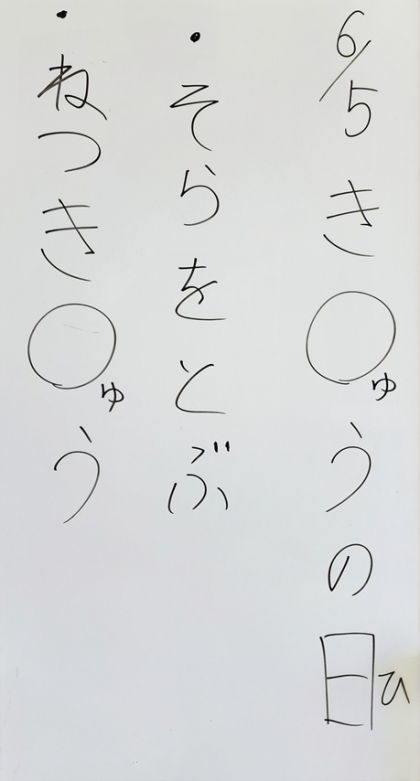 6/5 き○ゅうの日ひ
・そらをとぶ
・ねつき○ゅう